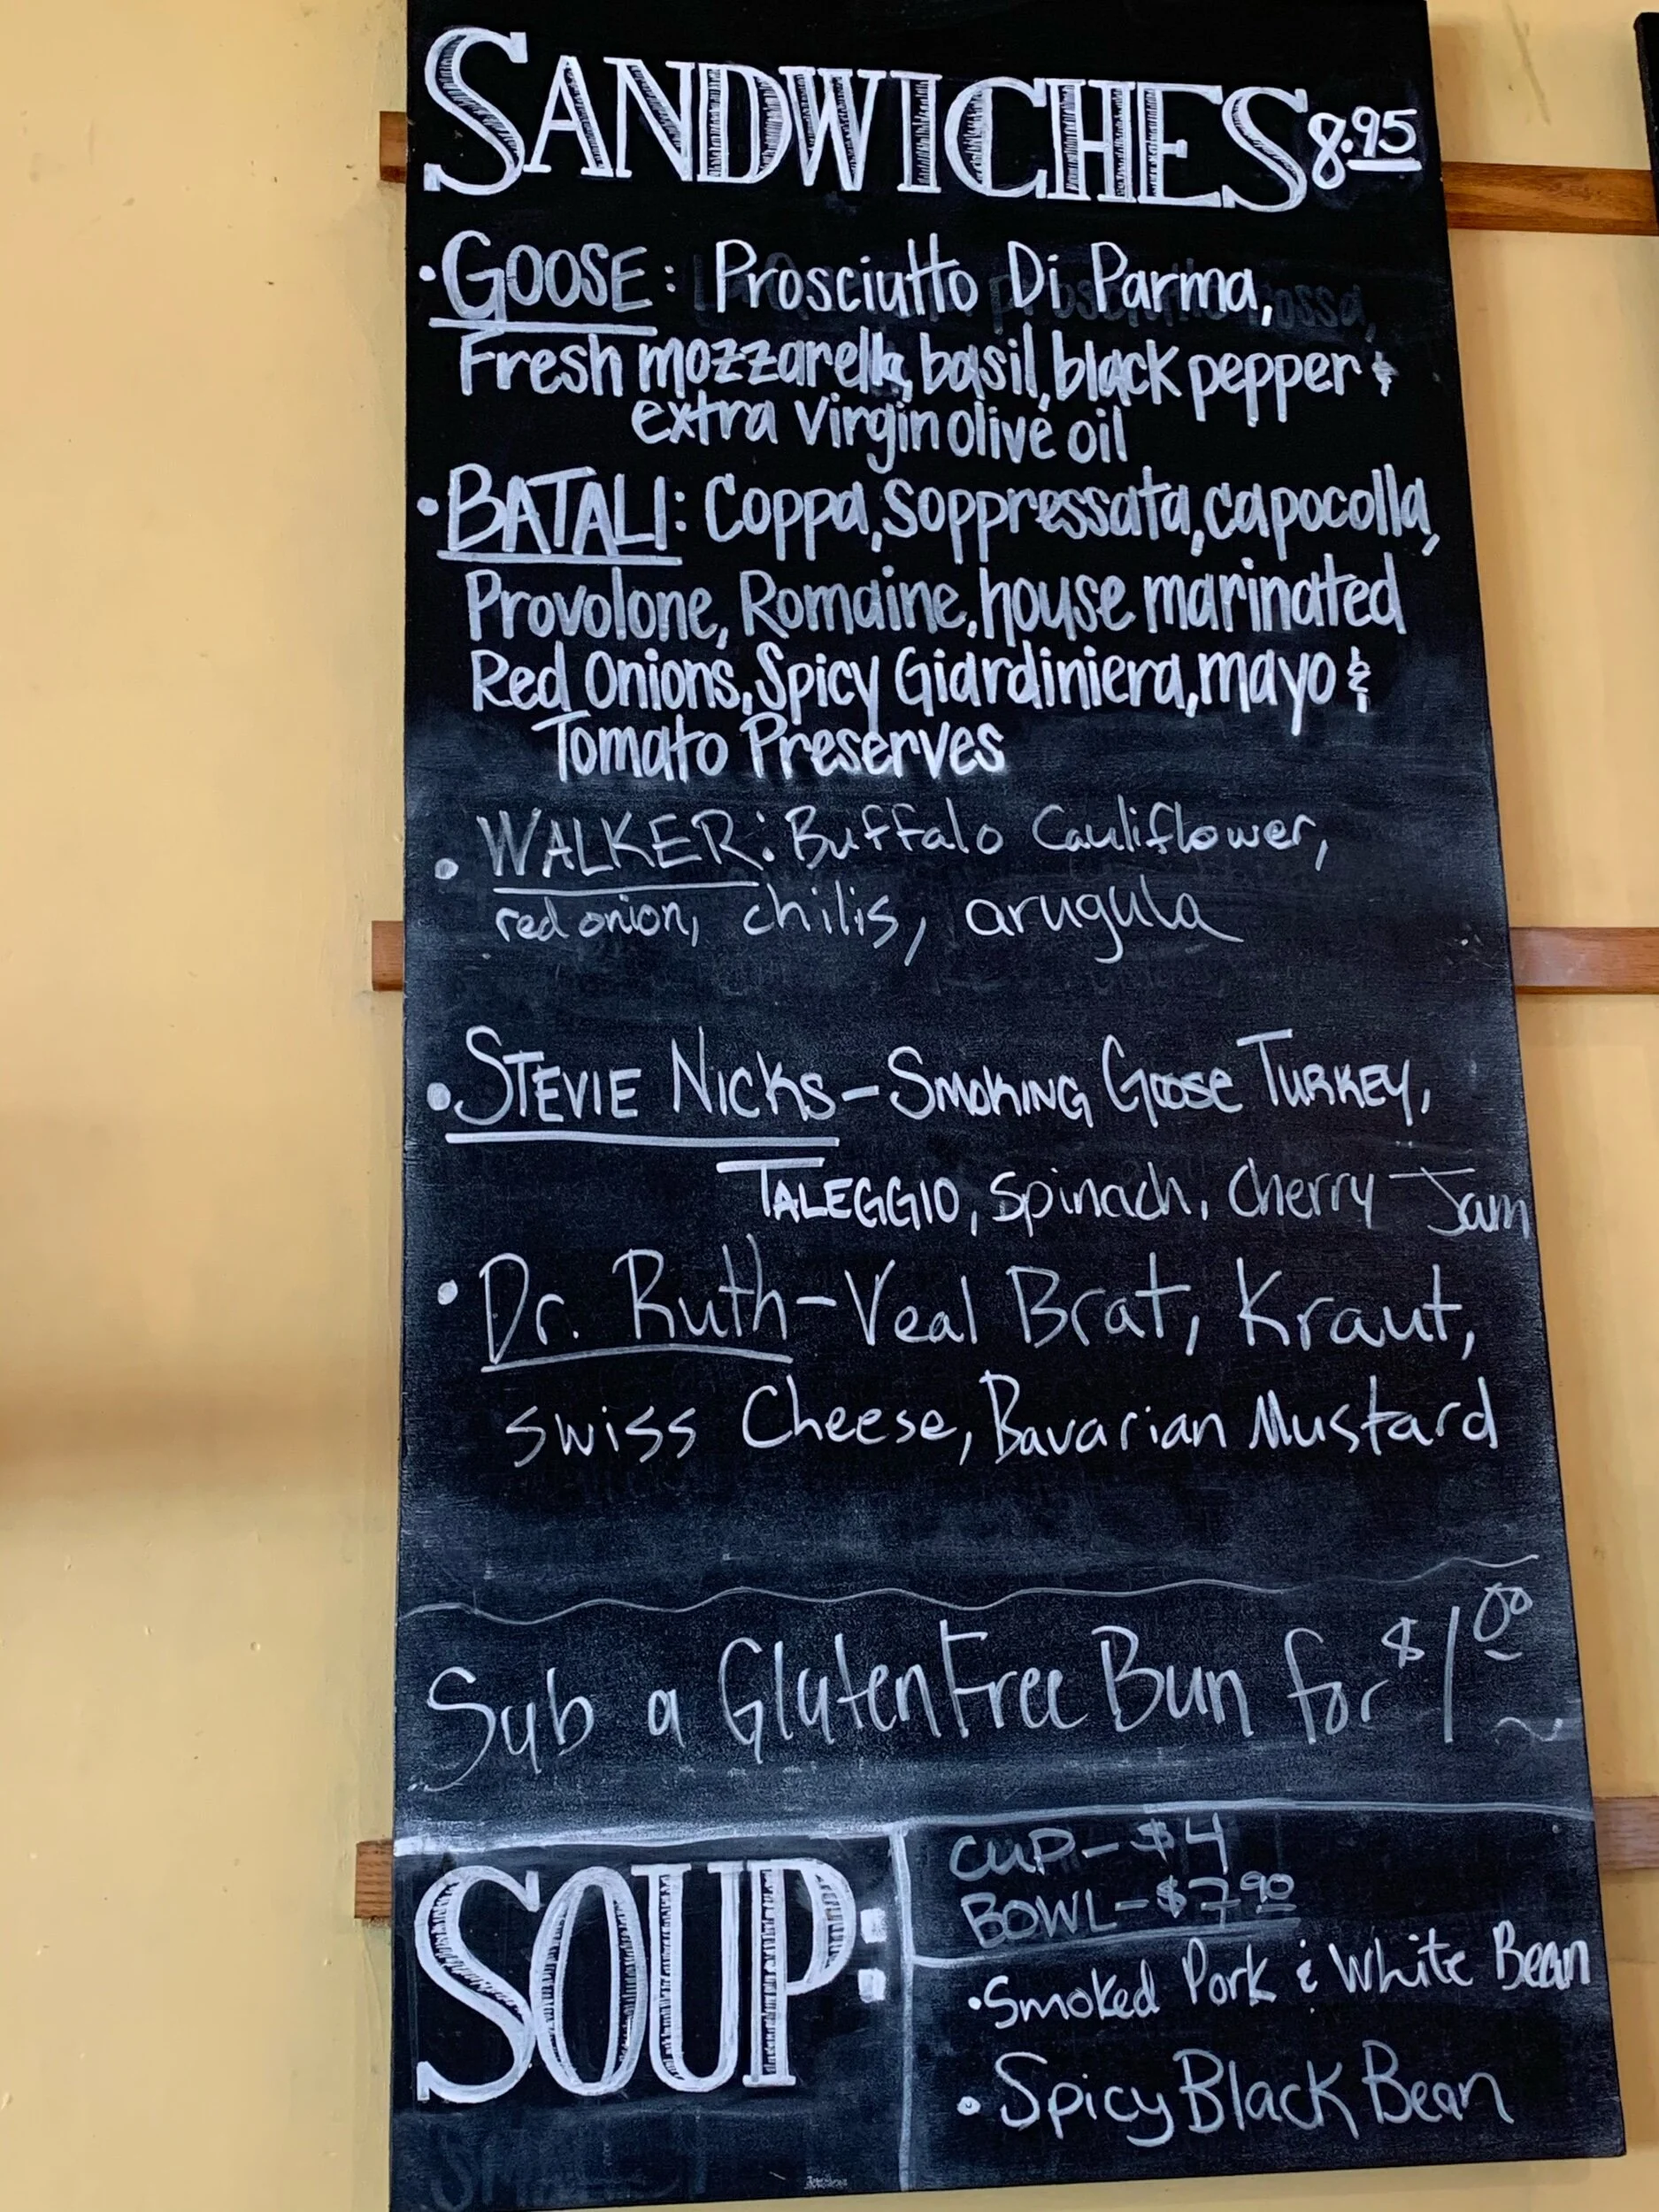 SANDWICHES 8.95
• GOOSE: Prosciutto Di Parma,
Fresh mozzarella, basil, black pepper &
extra virgin olive oil
• BATALI: Coppa, Soppressata, capocolla,
Provolone, Romaine, house marinated
Red Onions, Spicy Giardiniera, mayo &
Tomato Preserves
• WALKER: Buffalo Cauliflower,
red onion, chilis, arugula
• STEVIE NICKS - SMOKING Goose TURKEY,
TALEGGIO, Spinach, Cherry Jam
• Dr. Ruth - Veal Brat, Kraut,
Swiss Cheese, Bavarian Mustard
Sub a Gluten Free Bun for $1.00
SOUP:
CUP - $4
BOWL - $7.90
• Smoked Pork & White Bean
• Spicy Black Bean